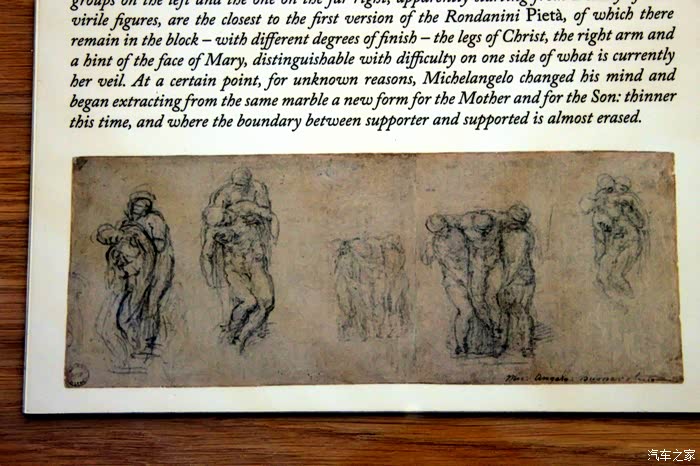 groups on the left and the one on the far right, apparently starting from
virile figures, are the closest to the first version of the Rondanini Pietà, of which there
remain in the block – with different degrees of finish – the legs of Christ, the right arm and
a hint of the face of Mary, distinguishable with difficulty on one side of what is currently
her veil. At a certain point, for unknown reasons, Michelangelo changed his mind and
began extracting from the same marble a new form for the Mother and for the Son: thinner
this time, and where the boundary between supporter and supported is almost erased.
Angelo
汽车之家